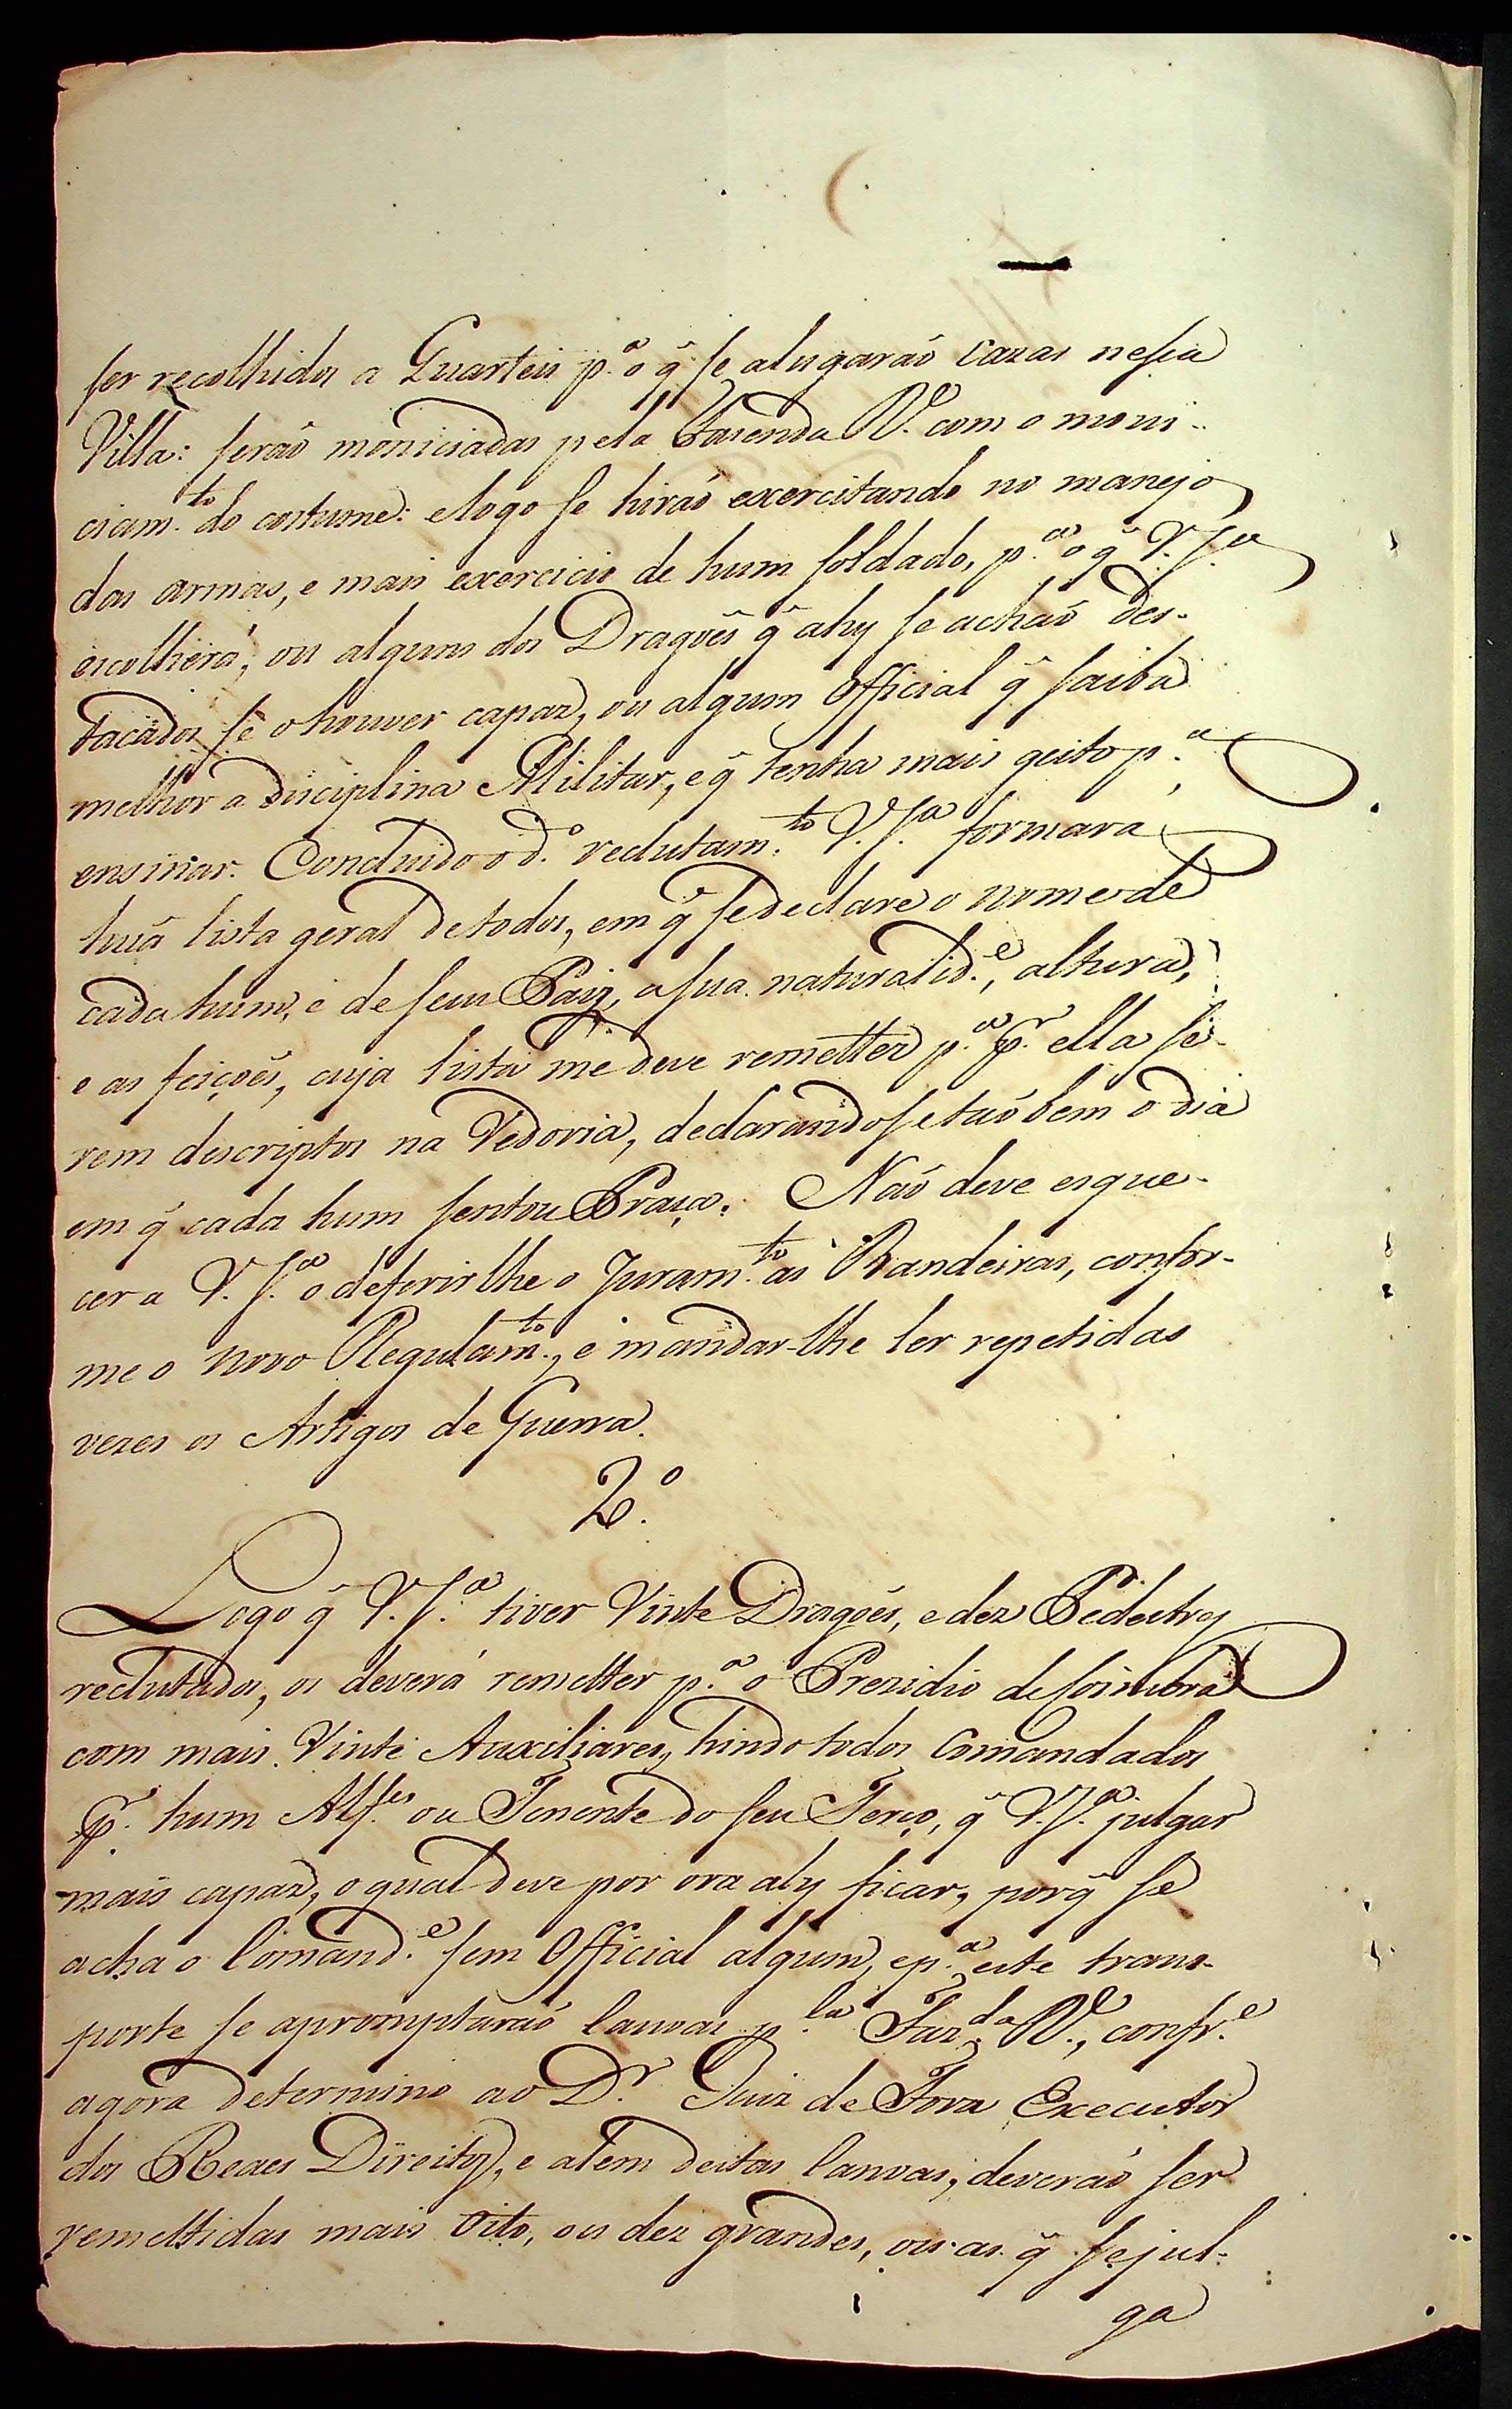 ser recolhidos a Quarteis p.ª o q̃ se alugaraõ cazas nessa
Villa: seraõ moniciadas pela Fasenda R.ˡ com o moni-
ciam.to do costume: e logo se hiraõ exercitando no manejo
das armas, e mais exercicio de hum soldado, p.ª o q̃ V. S.ª
escolherá, ou alguns dos Dragoẽs q̃ ahy se achaõ des-
tacados se o houver capaz, ou algum Official q̃ saiba
melhor a disciplina Militar, e q̃ tenha mais geito p.ª
ensinar. Concluido o d.º reclutam.to V. S.ª formará
huã lista geral de todos, em q̃ se declare o nome de
cada hum, e de seus Pais, a sua naturalid.e, altura,
e as feiçoẽs, cuja lista me deve remetter p.ª p.r ella se-
rem descriptos na Vedoria, declarandose taõbem o dia
em q̃ cada hum sentou Praça. Naõ deve esque-
cer a V. S.ª o deferirlhe o Juram.to ás Bandeiras, confor-
me o novo Regulam.to, e mandar-lhe ler repetidas
vezes os Artigos de Guerra.
2.º
Logo q̃ V. S.ª tiver Vinte Dragoẽs, e dez Pedestres
reclutados, os deverá remetter p.ª o Prezidio de Coimbra
com mais Vinte Auxiliares, hindo todos Comandados
p.r hum Alf.es ou Tenente do seu Terço, q̃ V. S.ª julgar
mais capaz, o qual deve por ora aly ficar, porq̃ se
acha o Comand.e sem Official algum, e p.ª este trans-
porte se apromptaraõ Canoas p.la Faz.da R.ˡ, confr.e
agora determino ao D.r Juiz de Fora Executor
dos Reaes Direitos, e alem destas Canoas, deveraõ ser
remettidas mais oito, ou dez grandes, ou as q̃ se jul-
ga